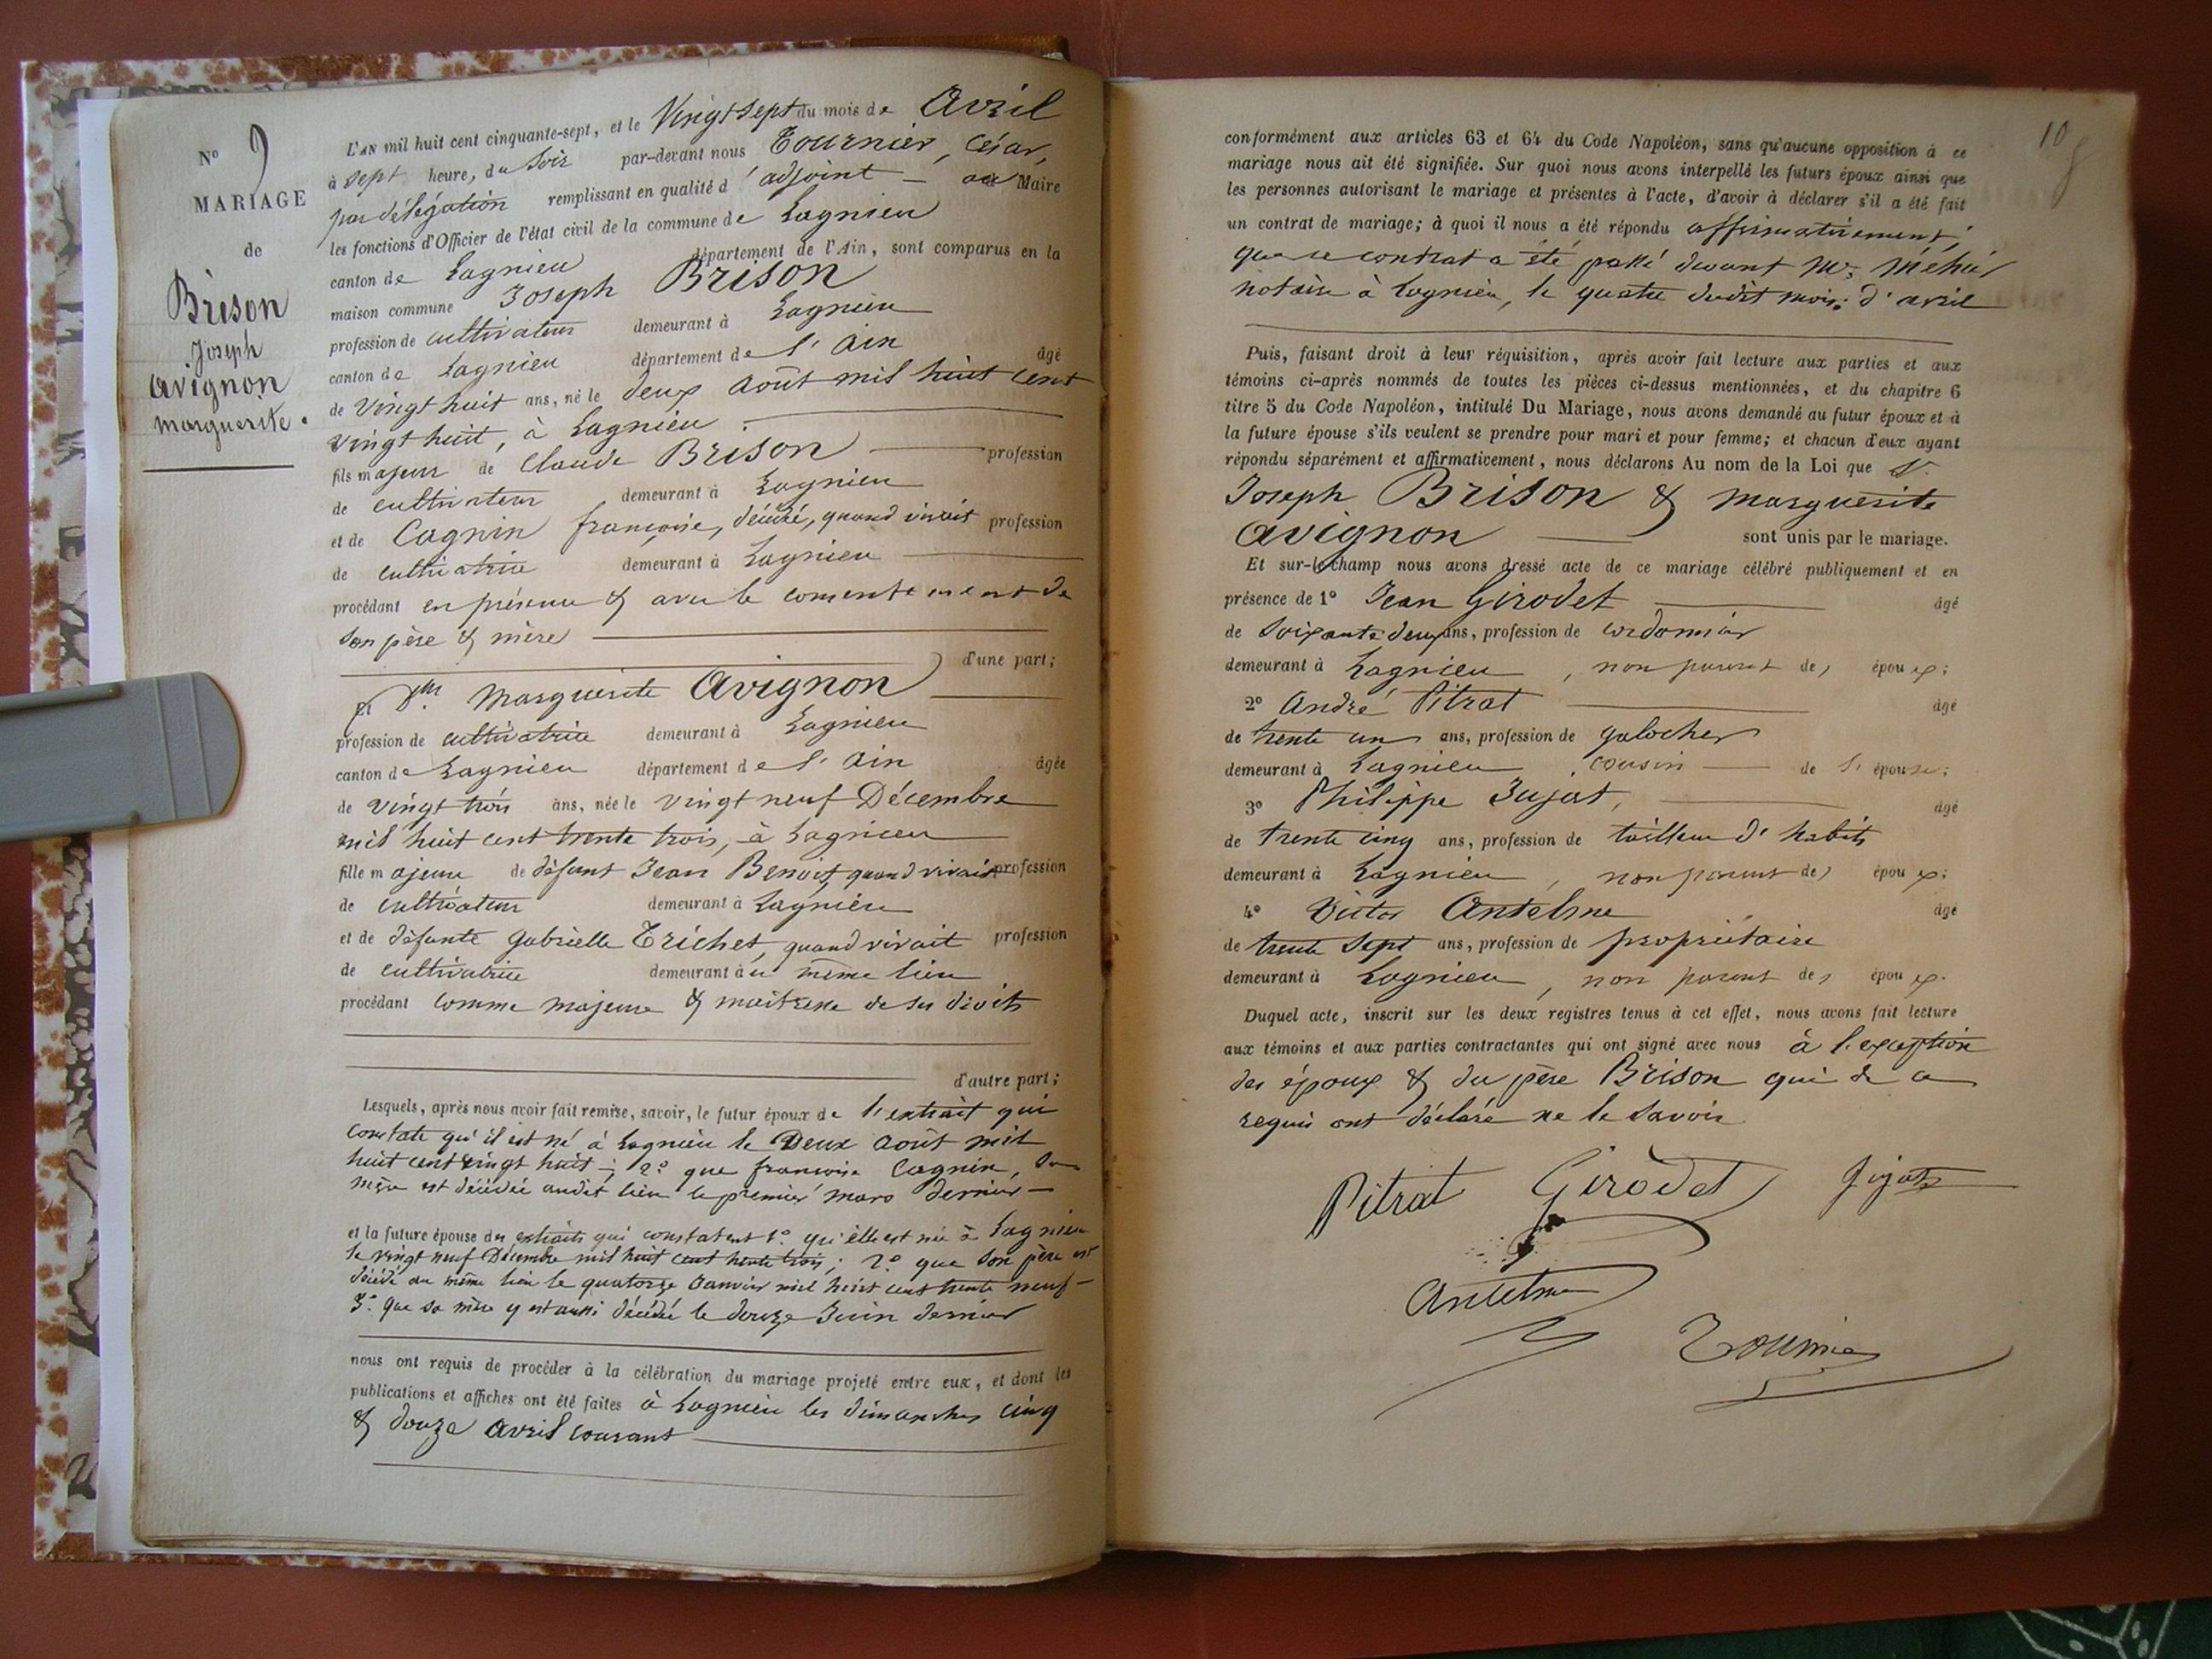 N° 9
MARIAGE
de
Brison
Joseph
Avignon
Marguerite.
L'AN mil huit cent cinquante-sept, et le Vingt Sept du mois de Avril
à Sept heure, du Soir par-devant nous Tournier, César,
par délégation remplissant en qualité d'adjoint — au Maire
les fonctions d'Officier de l'état civil de la commune de Lagnieu
canton de Lagnieu département de l'Ain, sont comparus en la
maison commune Joseph Brison
profession de cultivateur demeurant à Lagnieu
canton de Lagnieu département de l'Ain âgé
de Vingt huit ans, né le deux Août mil huit cent
vingt huit, à Lagnieu.
fils majeur de Claude Brison profession
de cultivateur, demeurant à Lagnieu
et de Cagnin françoise, décédée, quand vivait profession
de cultivatrice demeurant à Lagnieu
procédant en présence & avec le consentement de
son père & mère
d'une part;
Et Dlle Marguerite Avignon
profession de cultivatrice demeurant à Lagnieu
canton de Lagnieu département de l'Ain âgée
de vingt trois ans, née le vingt neuf Décembre
mil huit cent trente trois, à Lagnieu
fille majeure de défunt Jean Benoit, quand vivait profession
de cultivateur demeurant à Lagnieu
et de défunte Gabrielle Trichet, quand vivait profession
de cultivatrice demeurant au même lieu
procédant comme majeure & maitresse de ses droits
d'autre part;
Lesquels, après nous avoir fait remise, savoir, le futur époux de l'extrait qui
constate qu'il est né à Lagnieu le Deux Août mil
huit cent vingt huit; 2° que françoise Cagnin, sa
mère est décédée audit lieu le premier mars dernier —
et la future épouse des extraits qui constatent 1° qu'elle est née à Lagnieu
le vingt neuf Décembre mil huit cent trente trois; 2° que son père est
décédé au même lieu le quatorze Janvier mil huit cent trente neuf —
3° que sa mère y est aussi décédée le douze Juin dernier
nous ont requis de procéder à la célébration du mariage projeté entre eux, et dont les
publications et affiches ont été faites à Lagnieu les dimanches cinq
& douze avril courant
10
conformément aux articles 63 et 64 du Code Napoléon, sans qu'aucune opposition à ce
mariage nous ait été signifiée. Sur quoi nous avons interpellé les futurs époux ainsi que
les personnes autorisant le mariage et présentes à l'acte, d'avoir à déclarer s'il a été fait
un contrat de mariage; à quoi il nous a été répondu affirmativement,
que le contrat a été passé devant Me
notaire à Lagnieu, le quatre dudit mois d'avril
Puis, faisant droit à leur réquisition, après avoir fait lecture aux parties et aux
témoins ci-après nommés de toutes les pièces ci-dessus mentionnées, et du chapitre 6
titre 5 du Code Napoléon, intitulé Du Mariage, nous avons demandé au futur époux et à
la future épouse s'ils veulent se prendre pour mari et pour femme; et chacun d'eux ayant
répondu séparément et affirmativement, nous déclarons Au nom de la Loi que Sr
Joseph Brison & Marguerite
Avignon sont unis par le mariage.
Et sur-le-champ nous avons dressé acte de ce mariage célébré publiquement et en
présence de 1° Jean Girodet âgé
de Soixante deux ans, profession de cordonnier
demeurant à Lagnieu, non parent des époux;
2° André Pitrat âgé
de trente un ans, profession de galocher
demeurant à Lagnieu, cousin de l'épouse;
3° Philippe Jujat, âgé
de trente cinq ans, profession de tailleur d'habits
demeurant à Lagnieu, non parent des époux;
4° Victor Antelme âgé
de trente Sept ans, profession de propriétaire
demeurant à Lagnieu, non parent des époux.
Duquel acte, inscrit sur les deux registres tenus à cet effet, nous avons fait lecture
aux témoins et aux parties contractantes qui ont signé avec nous à l'exception
des époux & du père Brison qui de ce
requis ont déclaré ne le savoir
Pitrat Girodet Jujat
Antelme
Tournier